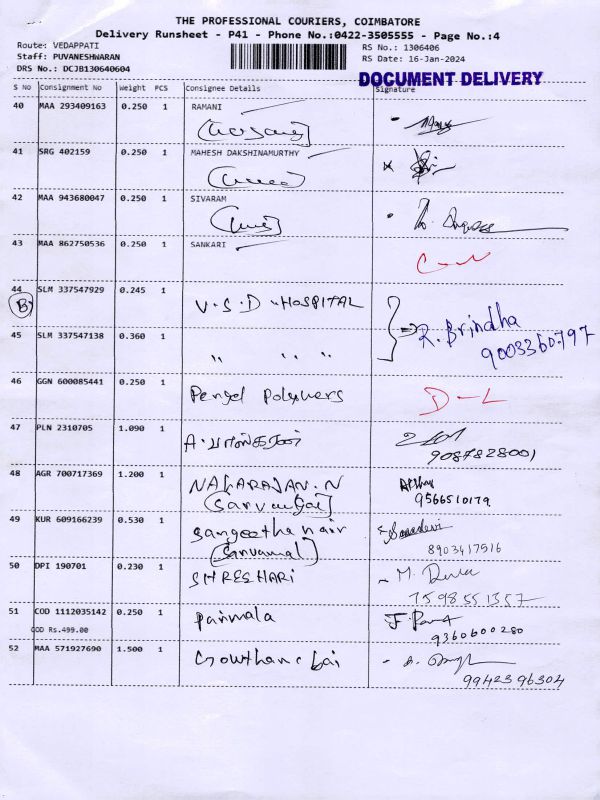 THE PROFESSIONAL COURIERS, COIMBATORE
Delivery Runsheet - P41 - Phone No.:0422-3505555 - Page No.:4
Route: VEDAPPATI RS No.: 1306406
Staff: PUVANESHWARAN RS Date: 16-Jan-2024
DRS No.: DCJB130640604 DOCUMENT DELIVERY
S No Consignment No Weight PCS Consignee Details Signature
40 MAA 293409163 0.250 1 RAMANI
41 SRG 402159 0.250 1 MAHESH DAKSHINAMURTHY
42 MAA 943680047 0.250 1 SIVARAM
43 MAA 862750536 0.250 1 SANKARI
44 SLM 337547929 0.245 1 V.S.D HOSPITAL
B R. Brindha
45 SLM 337547138 0.360 1 " " " 9003360797
46 GGN 600085441 0.250 1 Pengl Polymers D-L
47 PLN 2310705 1.090 1 A.
9087828001
48 AGR 700717369 1.200 1 NAGARAJAN.N
9566510179
49 KUR 609166239 0.530 1 Sangeetha nair
8903417516
50 DPI 190701 0.230 1 SHREEHARI M.
7598551357
51 COD 1112035142 0.250 1 Parimala
COD Rs.499.00 9360600280
52 MAA 571927690 1.500 1
9942396304